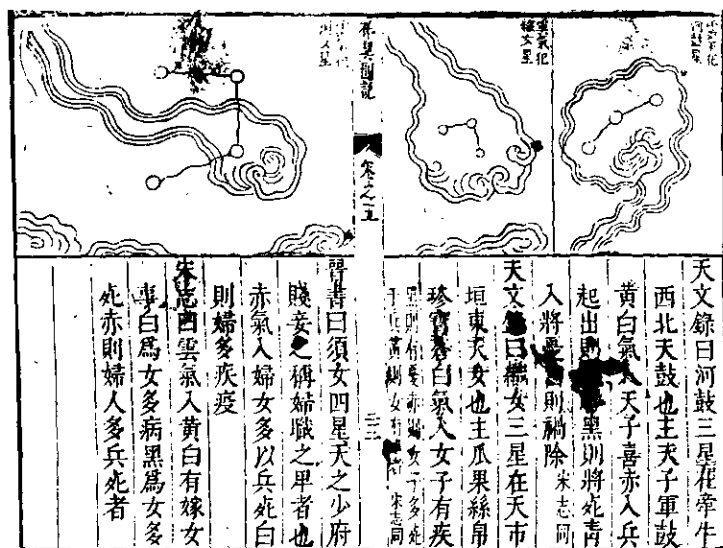 雲氣犯
河鼓星
雲氣犯
織女星
天文錄曰河鼓三星在牽牛
西北天鼓也主天子軍鼓
黃白氣入天子喜赤入兵
起出則 黑則將死青
入將憂 則禍除宋志同
天文錄曰織女三星在天市
垣東天女也主瓜果絲帛
珍寶蒼白氣入女子有疾
卷之五
雲氣犯
須女星
晉書曰須女四星天之少府
賤妾之稱婦職之卑者也
赤氣入婦女多以兵死白
則婦多疾疫
宋志曰雲氣入黃白有嫁女
事白為女多病黑為女多
死赤則婦人多兵死者